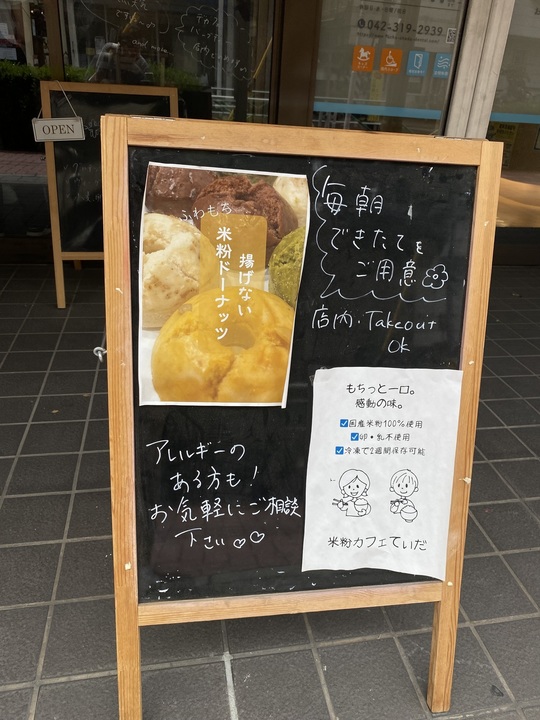 042-319-2939
OPEN
ふわもち
揚げない
米粉ドーナッツ
毎朝
できたてを
ご用意
店内・Takeout
Ok
アレルギーの
ある方も!
お気軽にご相談
下さい♡♡
もちっと一口。
感動の味。
☑国産米粉100%使用
☑卵・乳不使用
☑冷凍で2週間保存可能
米粉カフェてぃだ